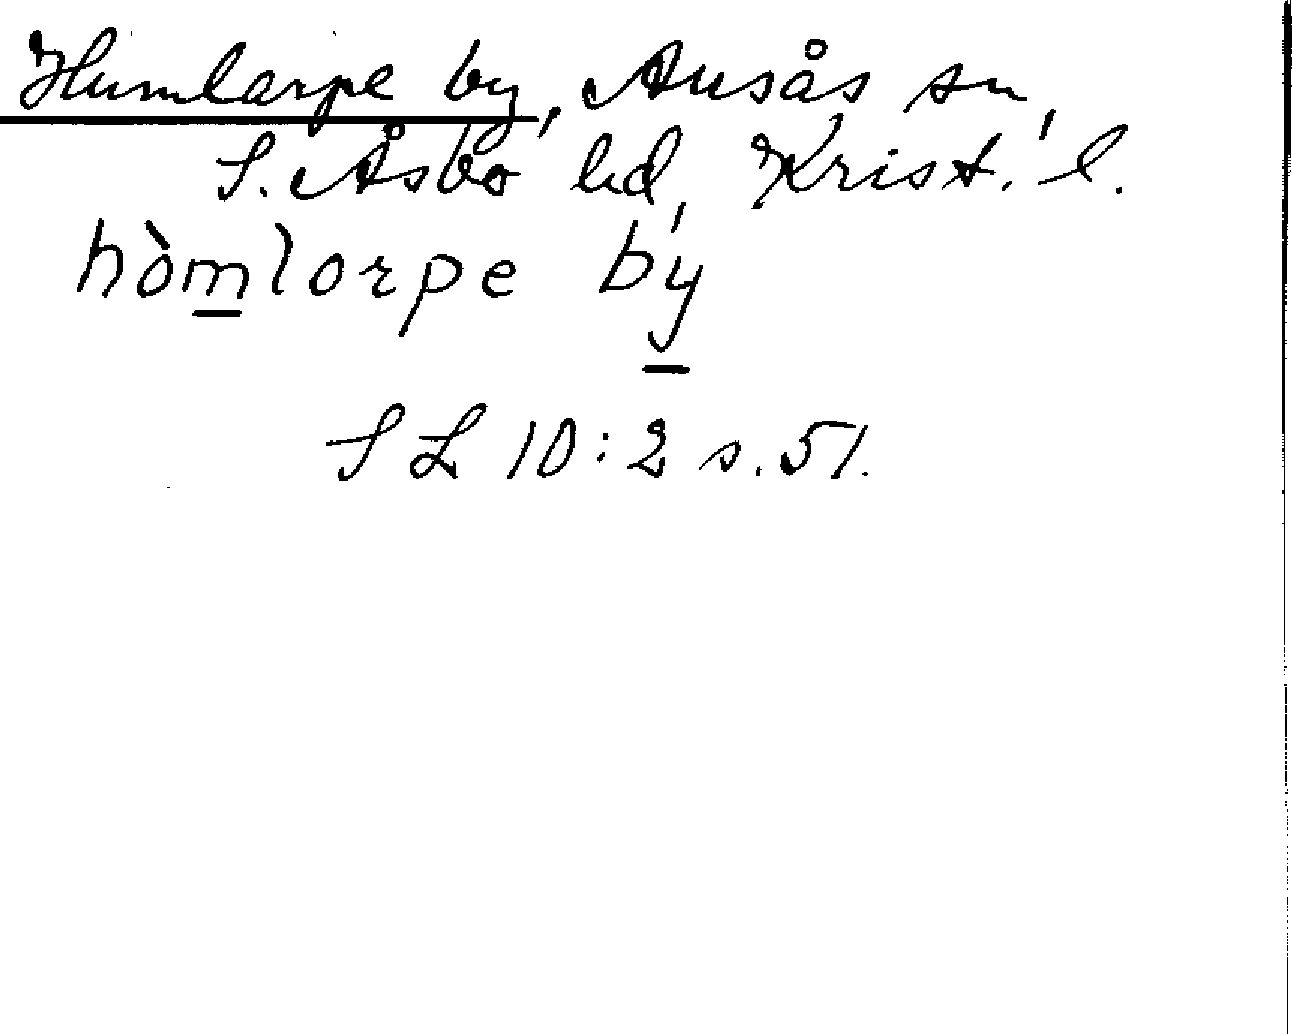 Humlarpe by, Ausås sn,
S. Åsbo hd, Krist. l.
hòmlorpe bý
SL 10:2 s. 51.